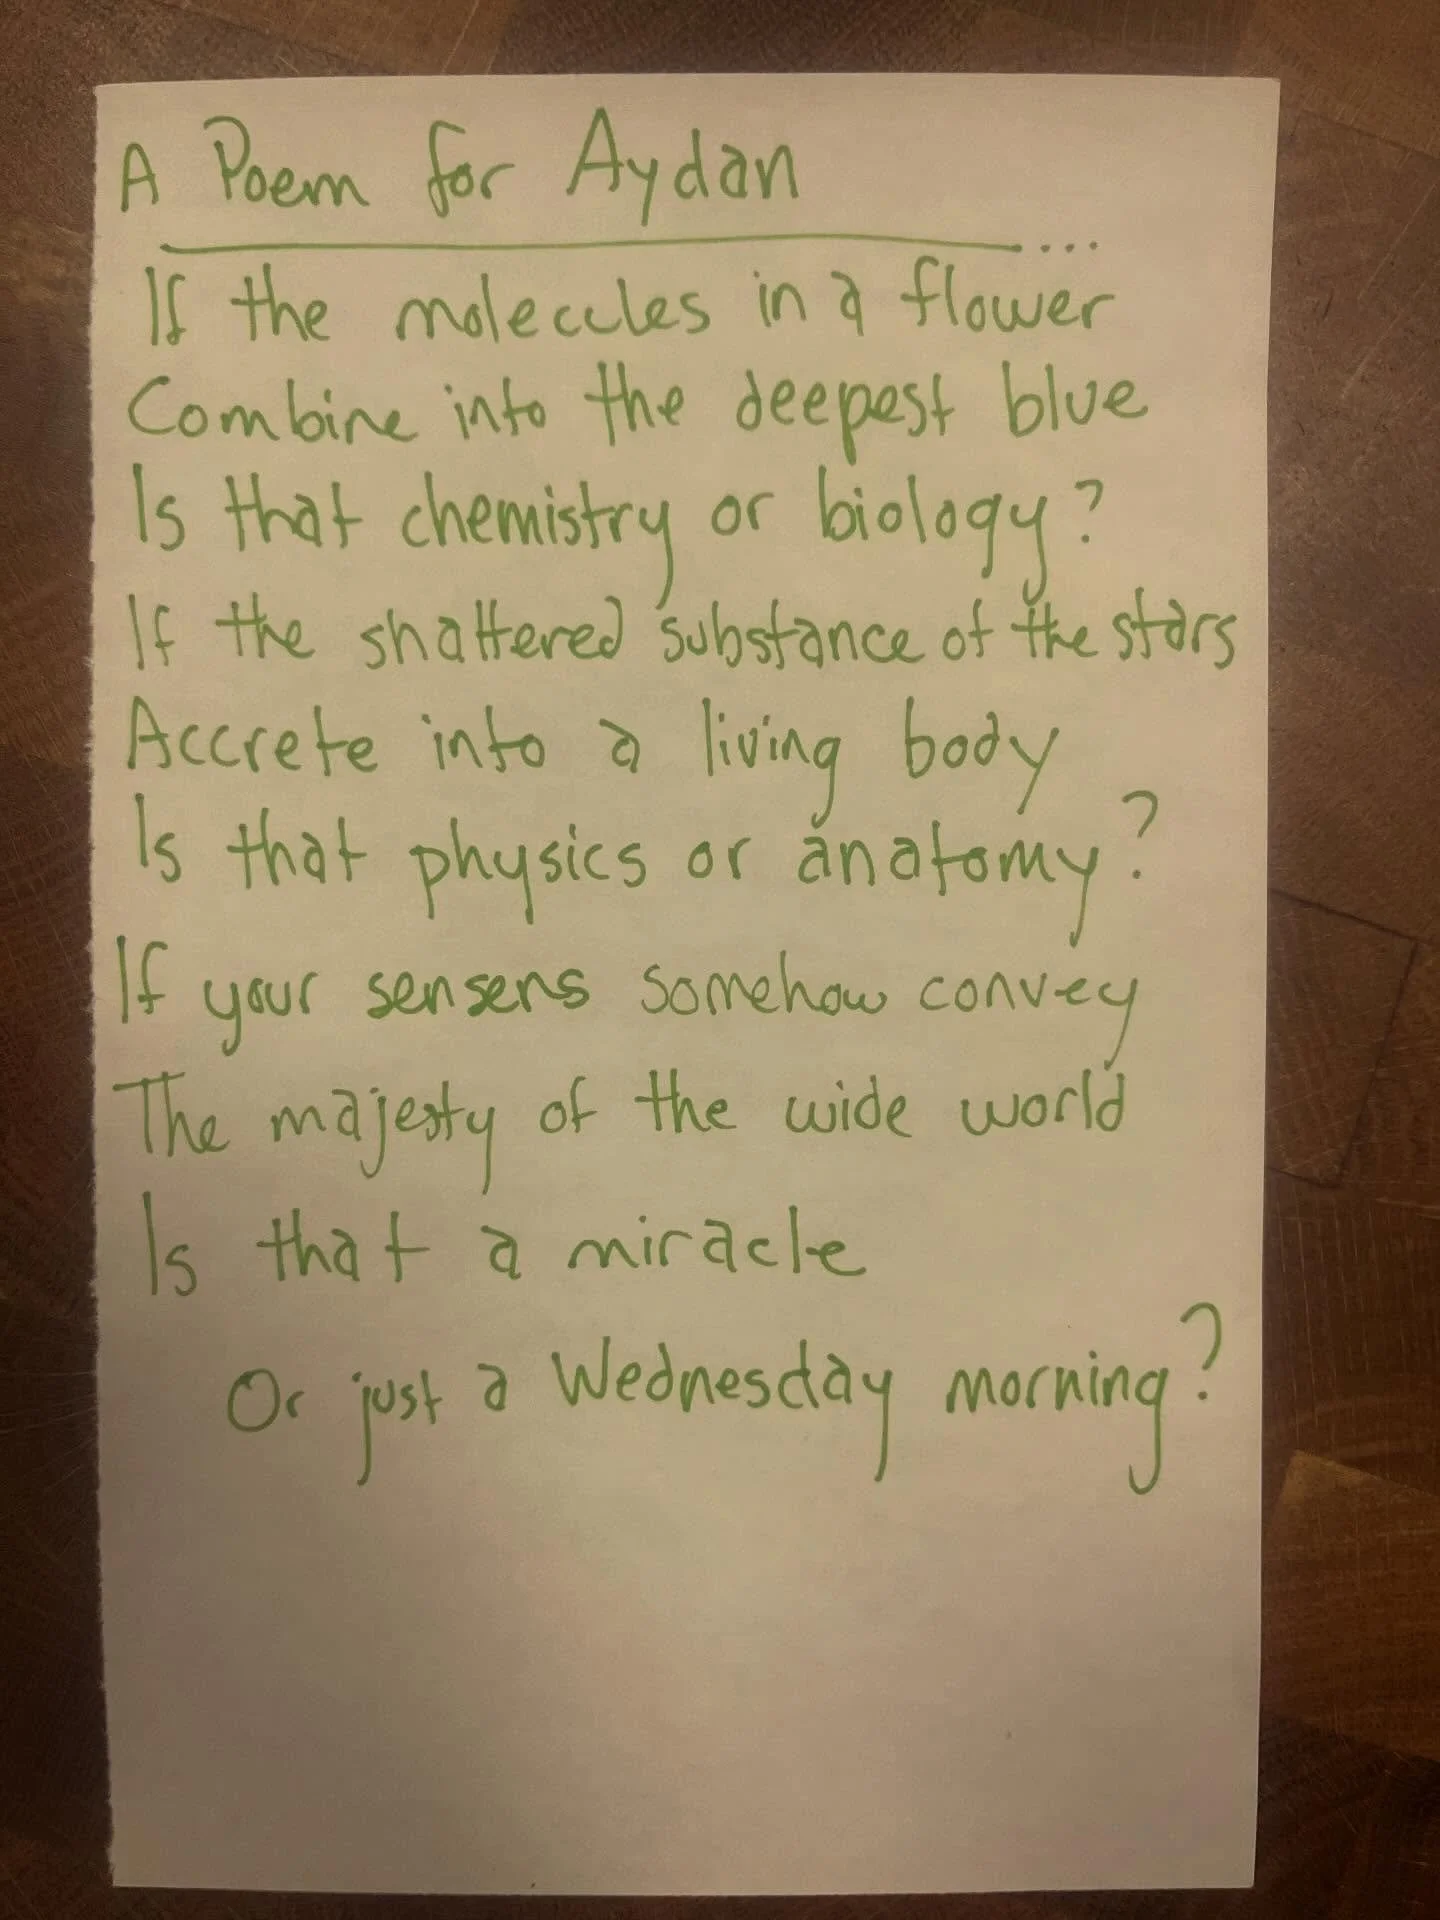 A Poem for Aydan
...
If the molecules in a flower
Combine into the deepest blue
Is that chemistry or biology?
If the shattered substance of the stars
Accrete into a living body
Is that physics or anatomy?
If your sensens somehow convey
The majesty of the wide world
Is that a miracle
Or just a Wednesday morning?